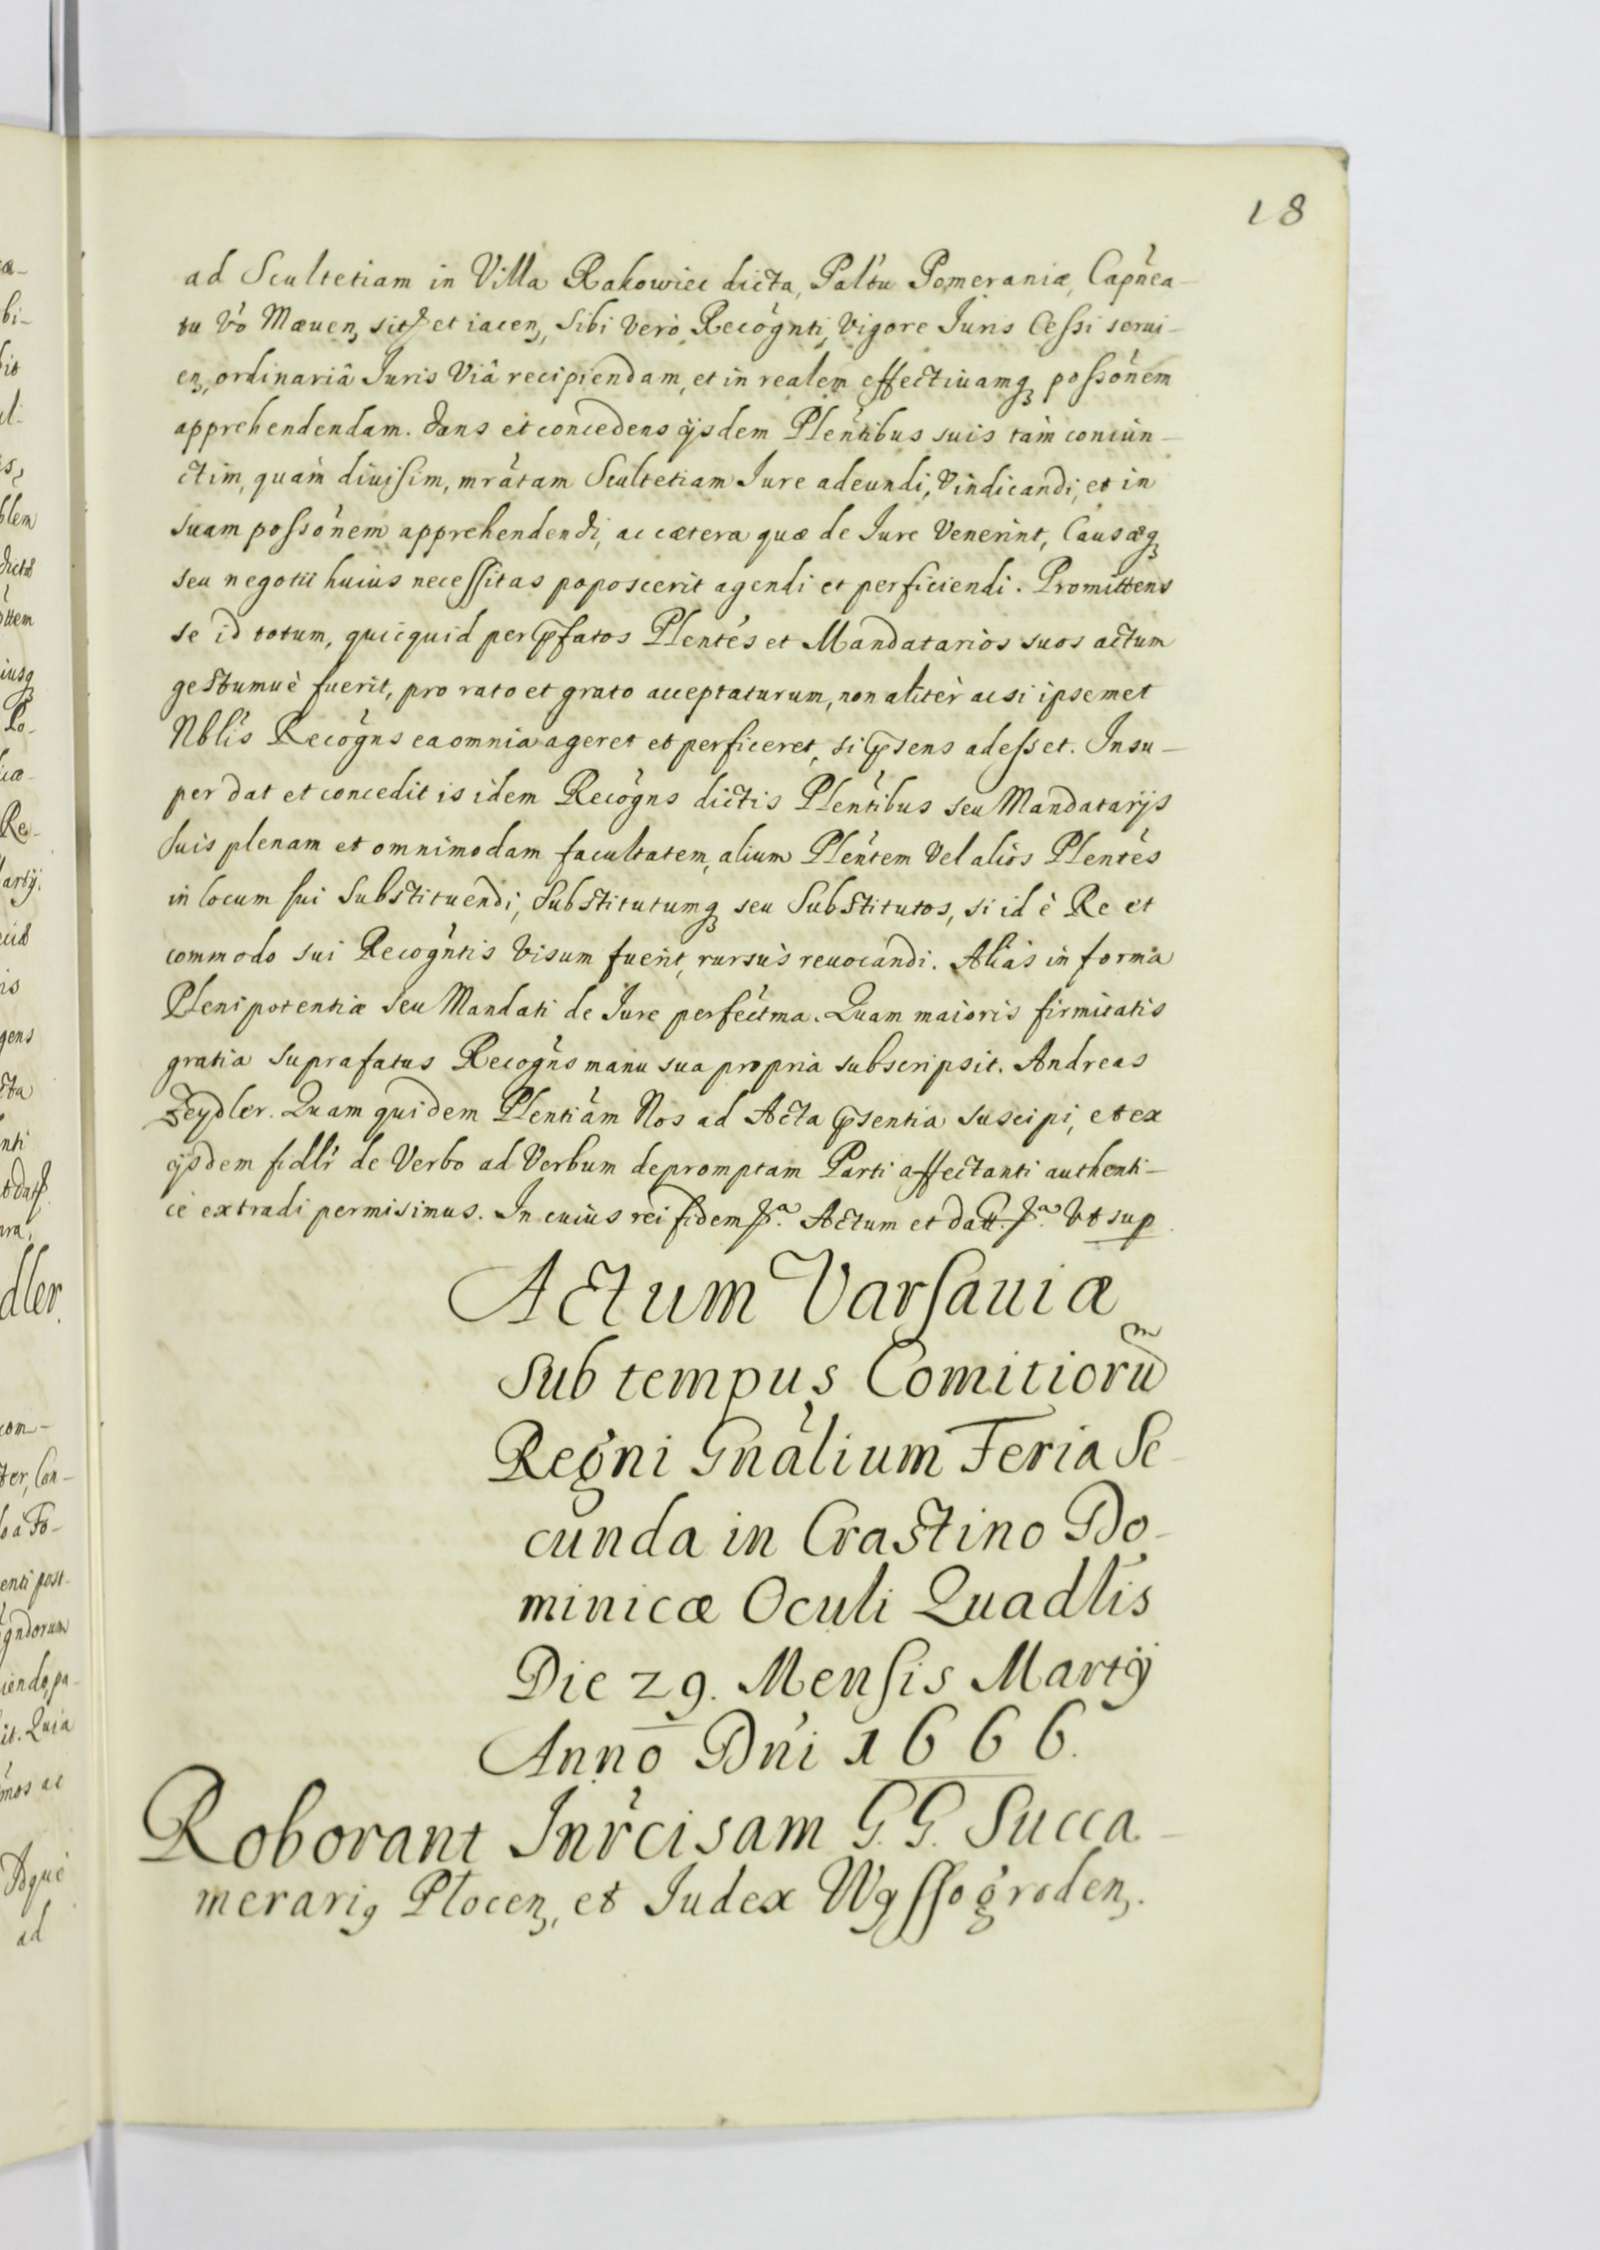 18
ad Scultetiam in Villa Rakowiec dicta, Pal'tu Pomeraniæ, Capn̄ea-
tu Vō Mæuen, sit et iacen, sibi verò Recogn̄ti, vigore Iuris Cessi serui-
en, ordinariâ Iuris Viâ recipiendam, et in realem effectiuamq possōnem
apprehendendam. dans et concedens ijsdem Plen̄tibus suis tàm coniun-
ctim, quàm diuisim, mrātam Scultetiam Iure adeundi, vindicandi, et in
suam possōnem apprehendendi, ac cætera quæ de Iure venerint, Causæq
seu negotii huius necessitas poposcerit agendi et perficiendi. Promittens
se id totum, quicquid per p̄fatos Plentes et Mandatarios suos actum
gestumuè fuerit, pro rato et grato acceptaturum, non aliter ac si ipsemet
Nblis Recogn̄s ea omnia ageret et perficeret, si p̄sens adesset. Insu-
per dat et concedit is idem Recogn̄s dictis Plen̄tibus seu Mandatarijs
suis plenam et omnimodam facultatem, alium Plen̄tem vel alios Plentes
in locum sui substituendi, substitutumq seu substitutos, si id è Re et
commodo sui Recogn̄tis visum fuerit, rursus reuocandi. Aliàs in forma
Plenipotentiæ seu Mandati de Iure perfectma. Quam maioris firmitatis
gratia suprafatus Recogn̄s manu sua propria subscripsit. Andreas
Zeydler. Quam quidem Plentiam Nos ad Acta p̄sentia suscipi, et ex
ijsdem fidlr de Verbo ad Verbum depromptam Parti affectanti authenti-
cè extradi permisimus. In cuius rei fidem pa. Actum et datt. pa. vt sup
Actum Varsauiæ
Sub tempus Comitiorum
Regni Gnālium Feria Se
cunda in Crastino Do-
minicæ Oculi Quadlis
Die 29. Mensis Martij
Anno Dn̄i 1666.
Roborant Inrcisam G.G. Succa-
merarig Plocen, et Iudex Wyssogroden.